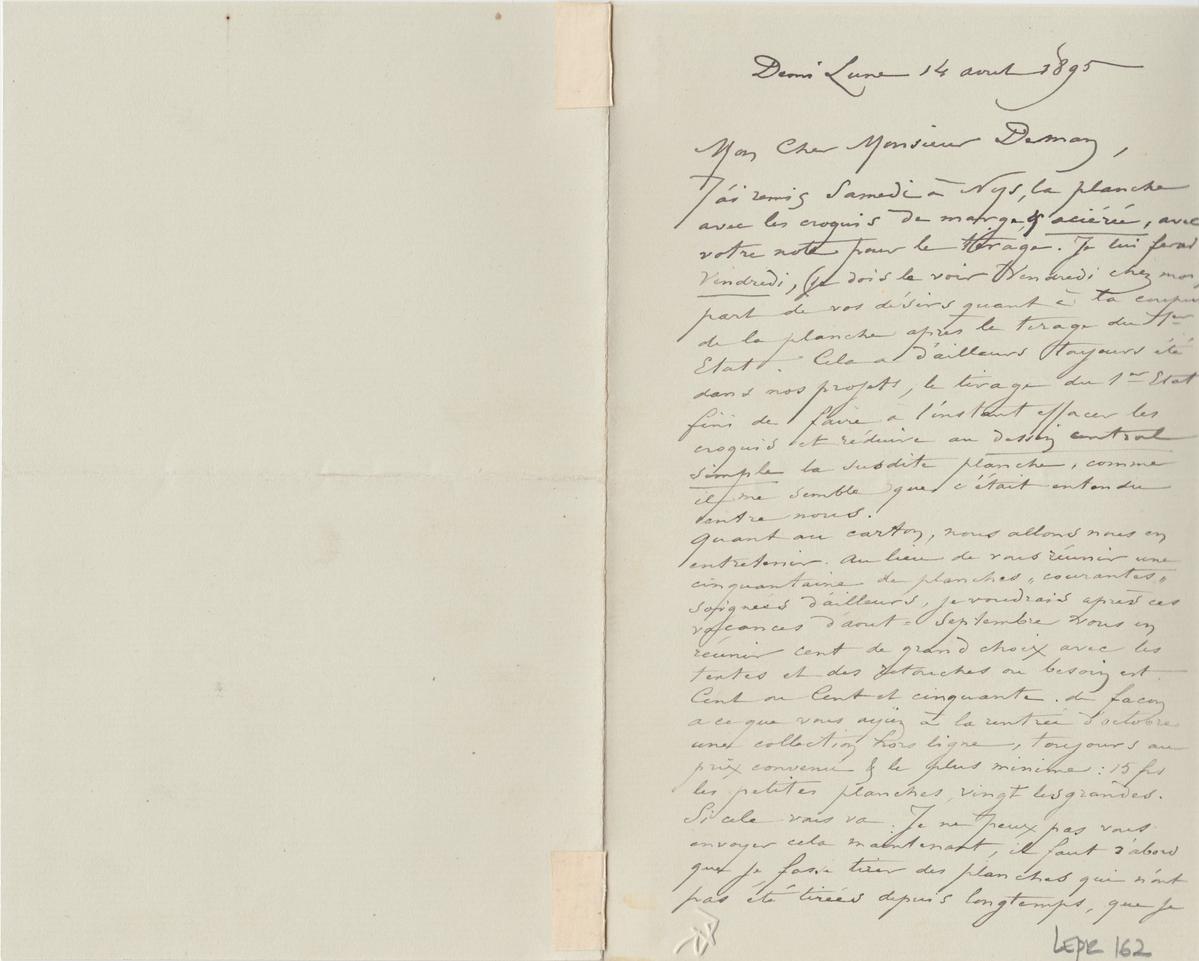 Demi Lune 14 aout 1895
Mon Cher Monsieur Deman,
J'ai remis Samedi à Nys, la planche
avec les croquis de marge, & aciérée, avec
votre note pour le tirage. Je lui ferai
Vendredi, (je dois le voir Vendredi chez moi,
part de vos désirs quant à la coupure
de la planche après le tirage du 1er
Etat. Cela a d'ailleurs toujours été
dans nos projets, le tirage du 1er Etat
fini de faire à l'instant effacer les
croquis et réduire au dessin central
simple la susdite planche, comme
il me semble que c'était entendu
entre nous.
Quant au carton, nous allons nous en
entretenir. Au lieu de vous réunir une
cinquantaine de planches "courantes"
soignées d'ailleurs, je voudrais après ces
vacances d'aout-Septembre vous en
réunir cent de grand choix avec les
teintes et des retouches ou besoin est.
Cent ou Cent et cinquante. de façon
a ce que vous ayiez à la rentrée d'octobre
une collection hors ligne, toujours au
prix convenu & le plus minime: 15 frs
les petites planches, vingt les grandes.
Si cela vous va. Je ne peux pas vous
envoyer cela maintenant, il faut d'abord
que je fasse tirer des planches qui n'ont
pas été tirées depuis longtemps, que je
LEPR 162